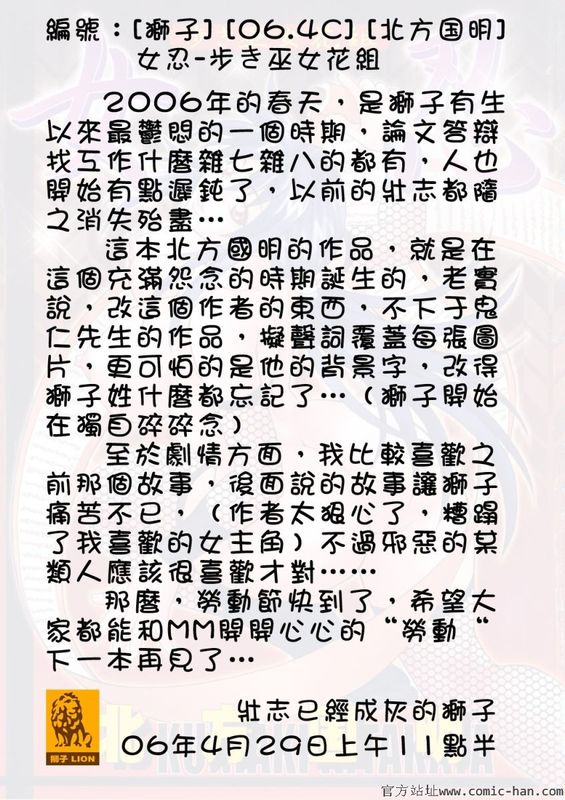 編號：[獅子] [06.4C] [北方国明]
女忍-步き巫女花組
2006年的春天，是獅子有生
以來最鬱悶的一個時期，論文答辯
找工作什麼雜七雜八的都有，人也
開始有點遲鈍了，以前的壯志都隨
之消失殆盡…
這本北方國明的作品，就是在
這個充滿怨念的時期誕生的，老實
說，改這個作者的東西，不下于鬼
仁先生的作品，擬聲詞覆蓋每張圖
片，更可怕的是他的背景字，改得
獅子姓什麼都忘記了…（獅子開始
在獨自碎碎念）
至於劇情方面，我比較喜歡之
前那個故事，後面說的故事讓獅子
痛苦不已，（作者太狠心了，糟蹋
了我喜歡的女主角）不過邪惡的某
類人應該很喜歡才對……
那麼，勞動節快到了，希望大
家都能和MM開開心心的“勞動“
下一本再見了…
獅子 LION
壯志已經成灰的獅子
06年4月29日上午11點半
官方站址www.comic-han.com